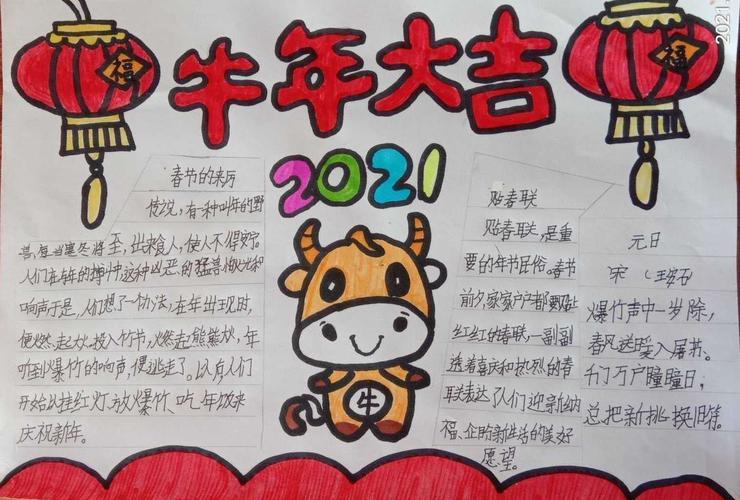 牛年大吉
2021
2021.
福
福
牛
春节的来历
传说，有一种叫年的野
兽，每当寒冬将至，出来食人，使人不得安宁。
人们在年的搏斗中这种凶恶的猛兽怕火光和
响声于是，人们想了一个办法，在年出现时，
便燃起火，投入竹节，燃起熊熊火，年
听到爆竹的响声，便逃走了。以后人们
开始以挂红灯、放爆竹、吃年饭来
庆祝新年。
贴春联
贴春联，是重
要的年节民俗。春节
前夕，家家户户都要贴
红红的春联，一副副
透着喜庆和热烈的春
联表达了人们迎新纳
福、企盼新生活的美好
愿望。
元日
宋（王安石
爆竹声中一岁除，
春风送暖入屠苏。
千门万户瞳瞳日，
总把新挑换旧符。